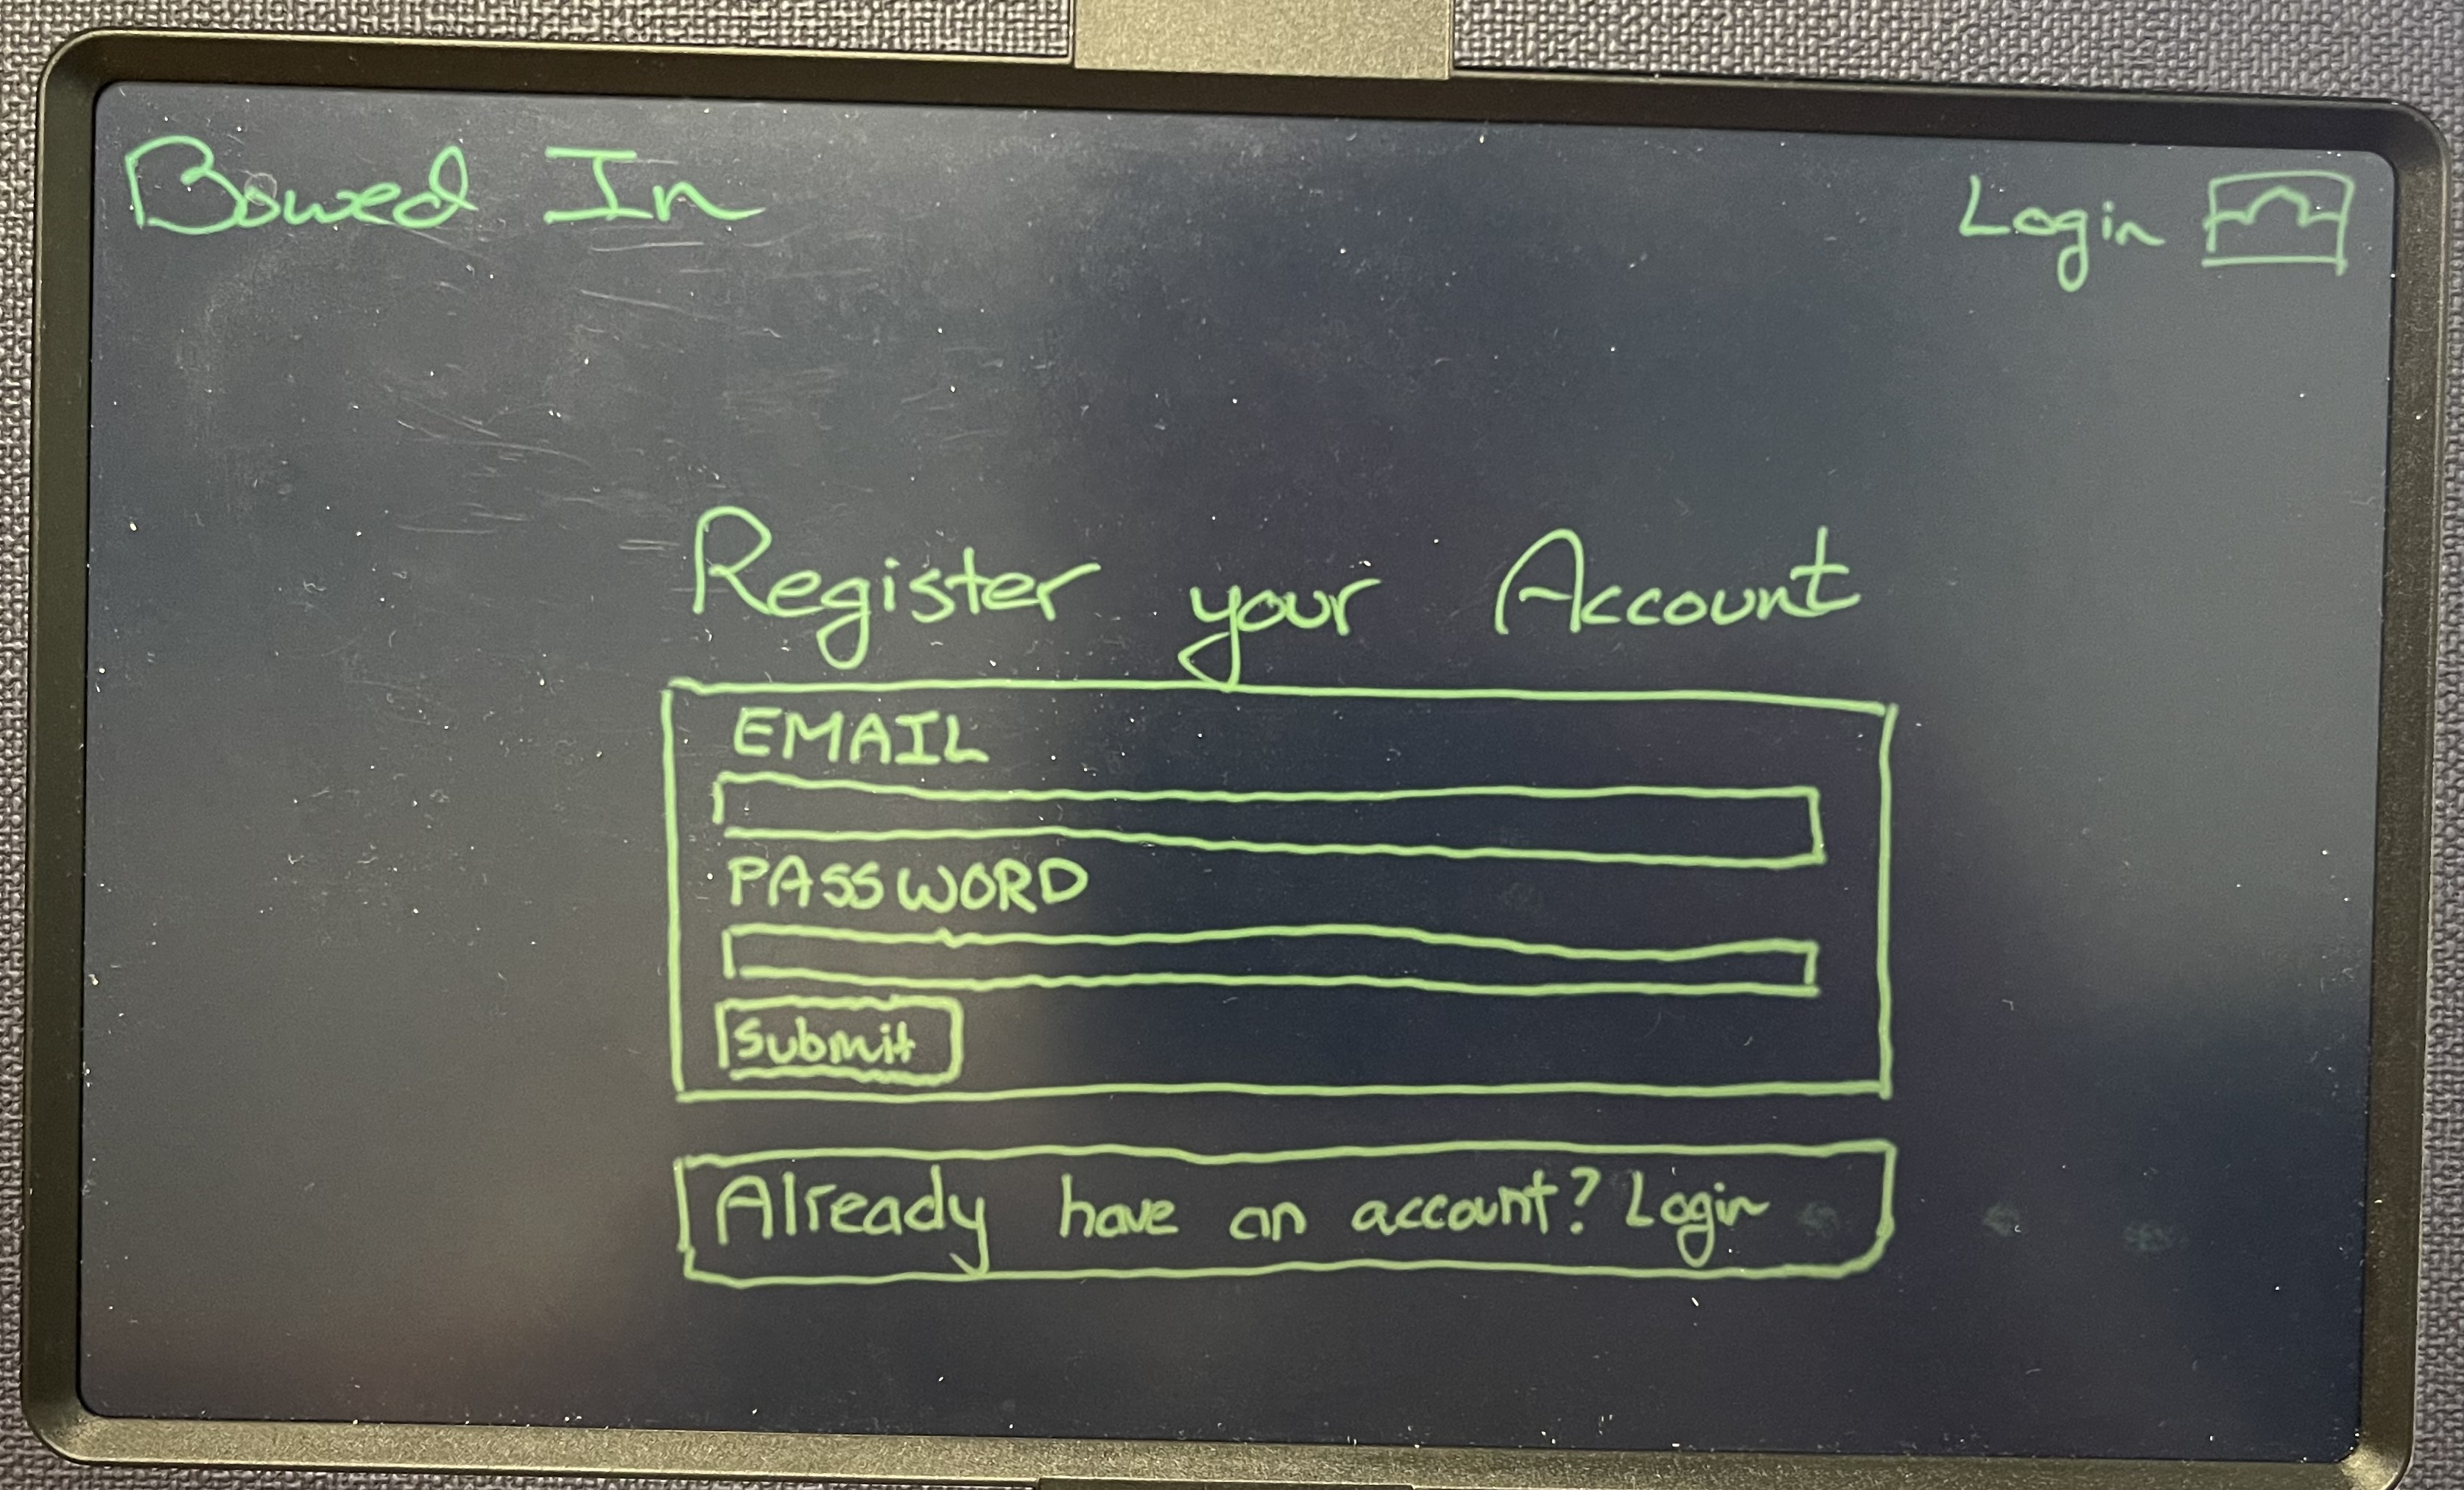 Bowed In
Login
Register your Account
EMAIL
PASSWORD
Submit
Already have an account? Login